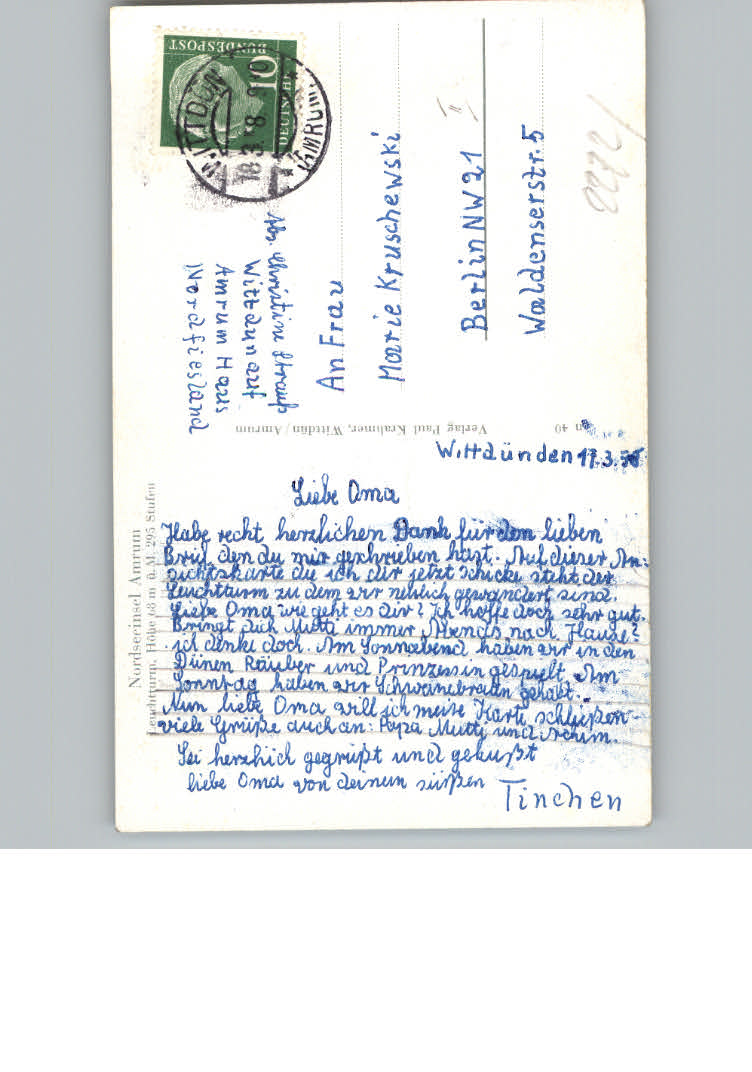 DEUTSCHE
BUNDESPOST
10
WITTDÜN
18.3.58
(AMRUM)
Abs. Christine
Wittdün auf
Amrum Haus
(Nordfiesland
An Frau
Marie Kruschewski
Berlin NW 21
Waldenserstr. 5
II
2272/
Verlag Paul Krahmer, Wittdün/Amrum
n 40
Nordseeinsel Amrum
Leuchtturm, Höhe 68 m ü. M. 295 Stufen
Wittdünden 17.3.58
Liebe Oma
Habe recht herzlichen Dank für den lieben
Brief den du mir geschrieben hast. Auf dieser An-
sichtskarte die ich dir jetzt schicke steht der
Leuchtturm zu dem wir nehlich gewandert sind.
Liebe Oma wie geht es dir? Ich hoffe doch sehr gut.
Bringt dich Mutti immer Abends nach Hause?
ich denke doch. Am Sonnabend haben wir in den
Dünen Räuber und Prinzessin gespielt. Am
Sonntag haben wir Schweinebraten gehabt.
Nun liebe Oma will ich meine Karte schließen
viele Grüße auch an: Papa Mutti und Achim.
Sei herzlich gegrüßt und geküßt
liebe Oma von deinem süßen Tinchen